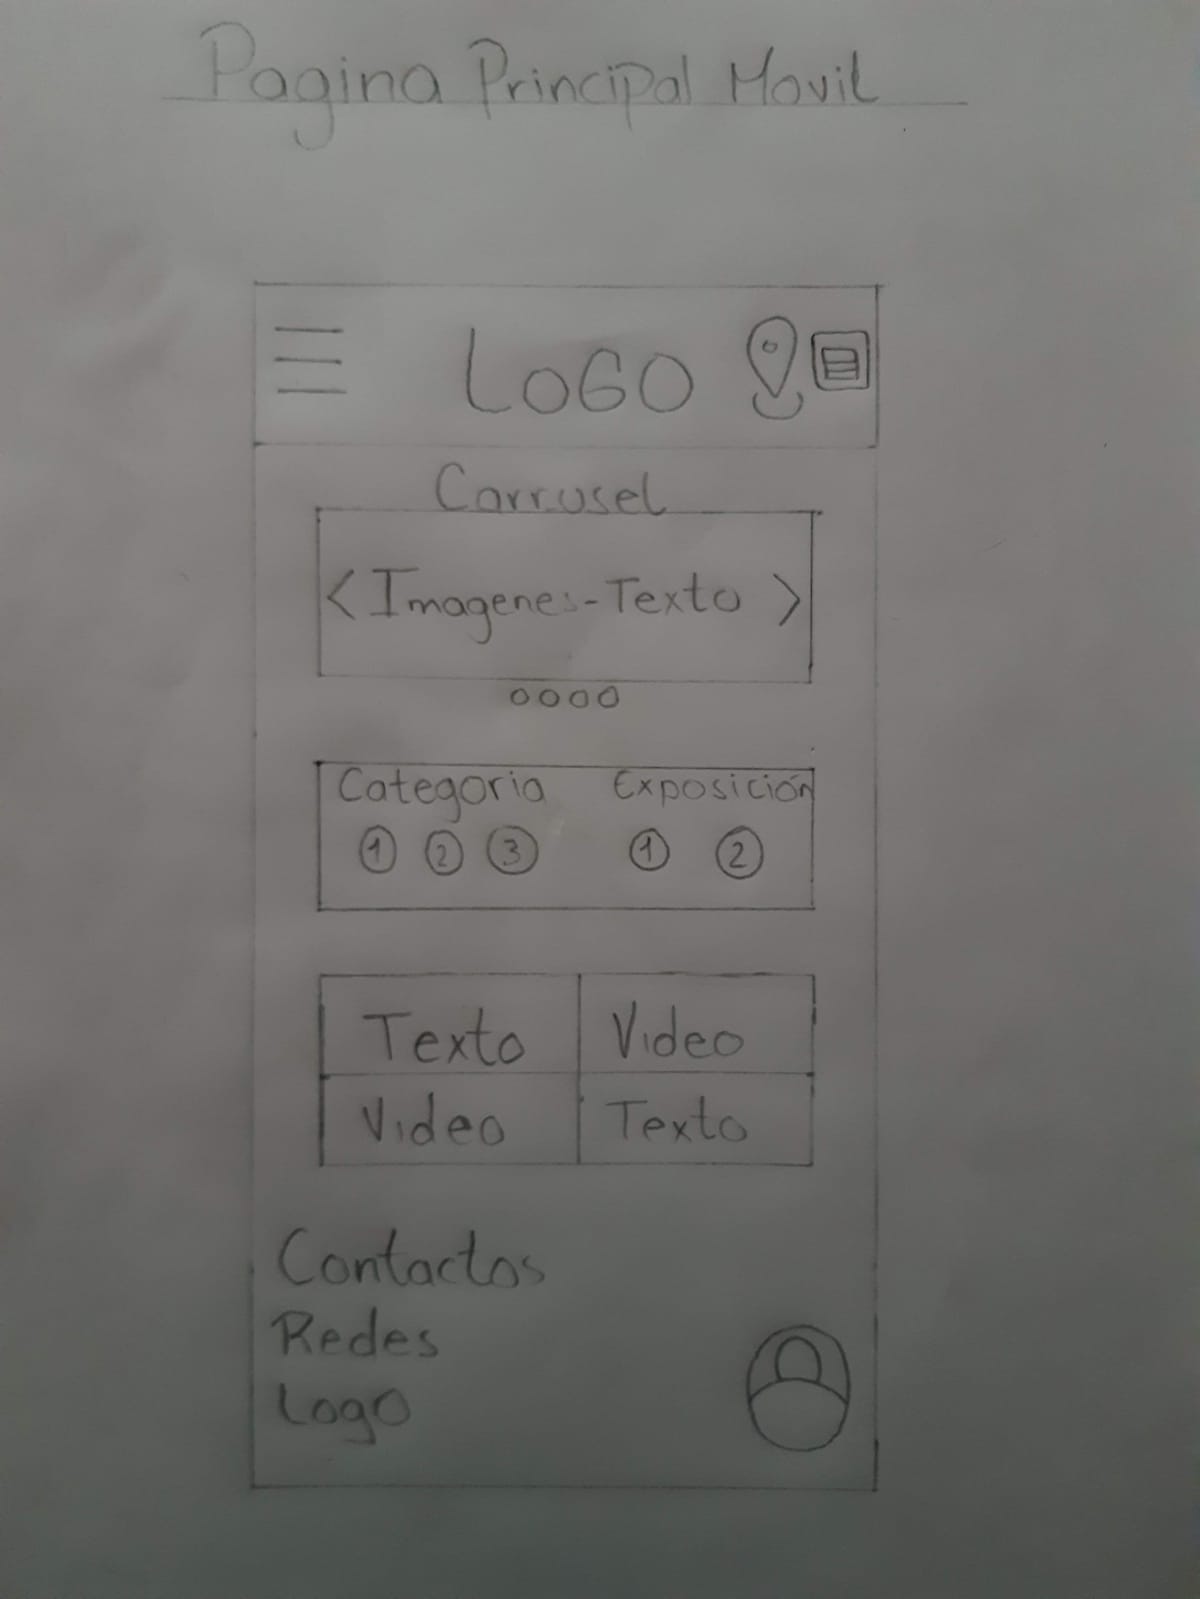 Pagina Principal Movil
LOGO
Carrusel
< Imagenes-Texto >
Categoria Exposición
1 2 3 1 2
Texto Video
Video Texto
Contactos
Redes
Logo